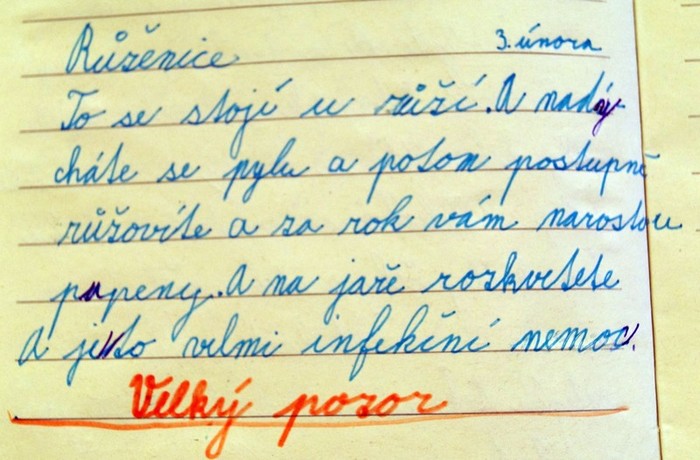 Růžěnice 3. února
To se stojí u růží. A nadý-
cháte se pylu a potom postupně
růžovíte a za rok vám narostou
pupeny. A na jaře rozkvetete
A je to velmi infekční nemoc.
Velký pozor